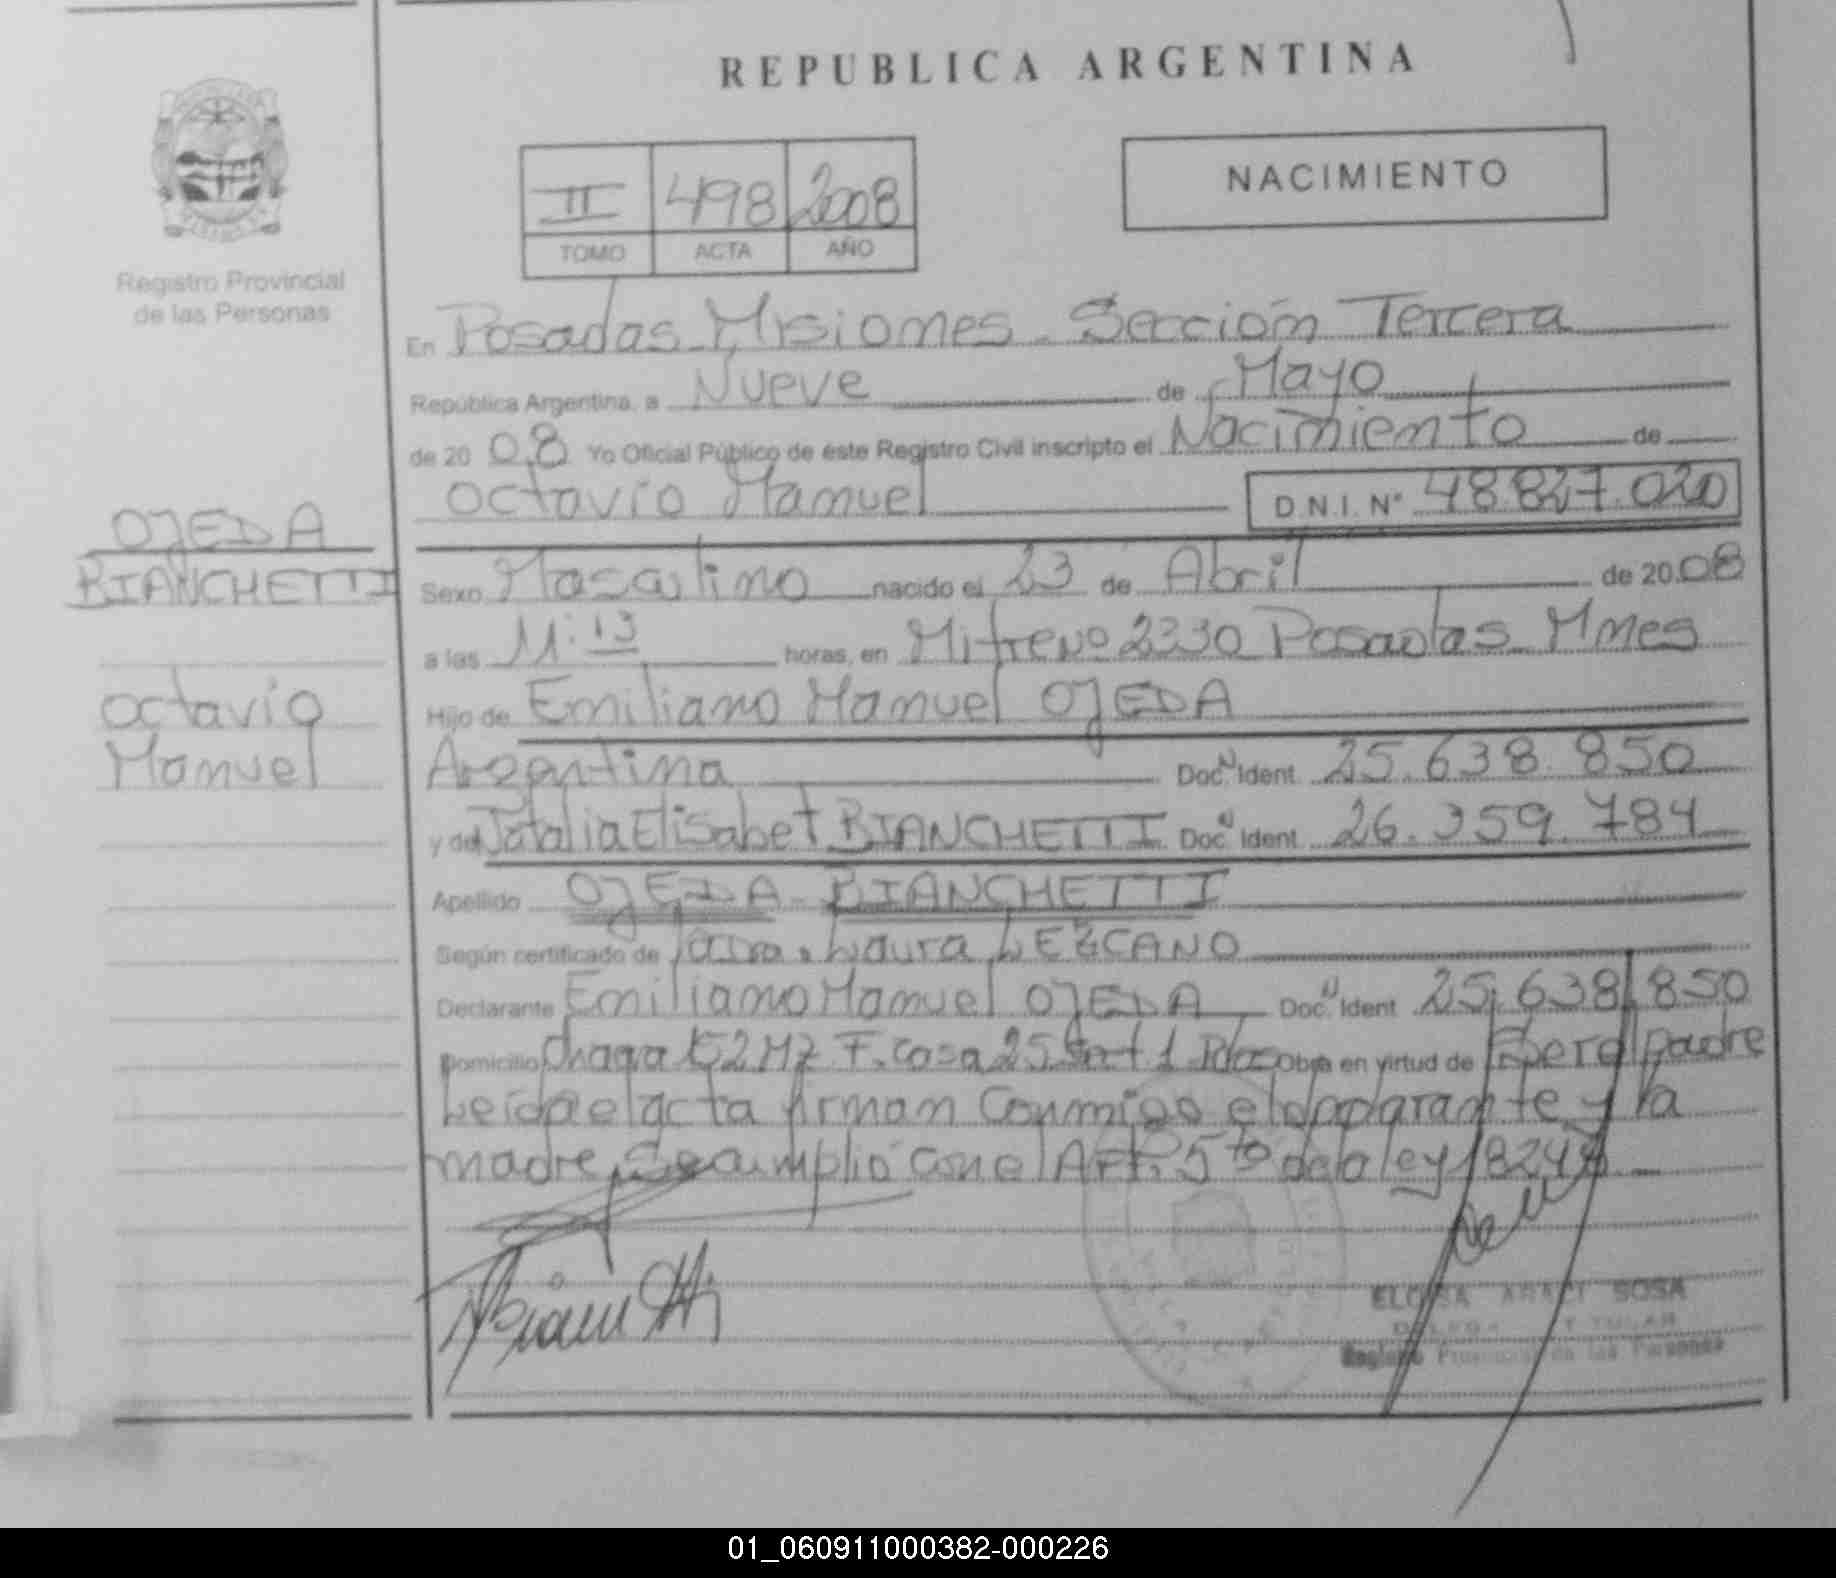 REPUBLICA ARGENTINA
II 498 2008
TOMO ACTA AÑO
NACIMIENTO
Registro Provincial
de las Personas
En Posadas Misiones. Sección Tercera
República Argentina, a Nueve de Mayo
de 2008 Yo Oficial Público de éste Registro Civil inscripto el Nacimiento de
Octavio Manuel D.N.I. Nº 48.827.020
OJEDA
BIANCHETTI
Octavio
Manuel
Sexo Masculino nacido el 23 de Abril de 2008
a las 11:13 horas, en Mitre Nº 2330 Posadas Mnes
Hijo de Emiliano Manuel OJEDA
Argentina Doc. Ident. 25.638.850
y de Natalia Elisabet BIANCHETTI Doc. Ident. 26.359.784
Apellido OJEDA - BIANCHETTI
Según certificado de Laura LEZCANO
Declarante Emiliano Manuel OJEDA Doc. Ident. 25.638.850
Domicilio Chaga 52 Mz F. Casa 25 1 Pdas Obra en virtud de Ser el padre
Leida el acta firman Conmigo el declarante y la
madre Se cumplió con el Art. 5to de la ley 18248
ELOISA ARACI SOSA
Registro Provincial de las Personas
01_060911000382-000226